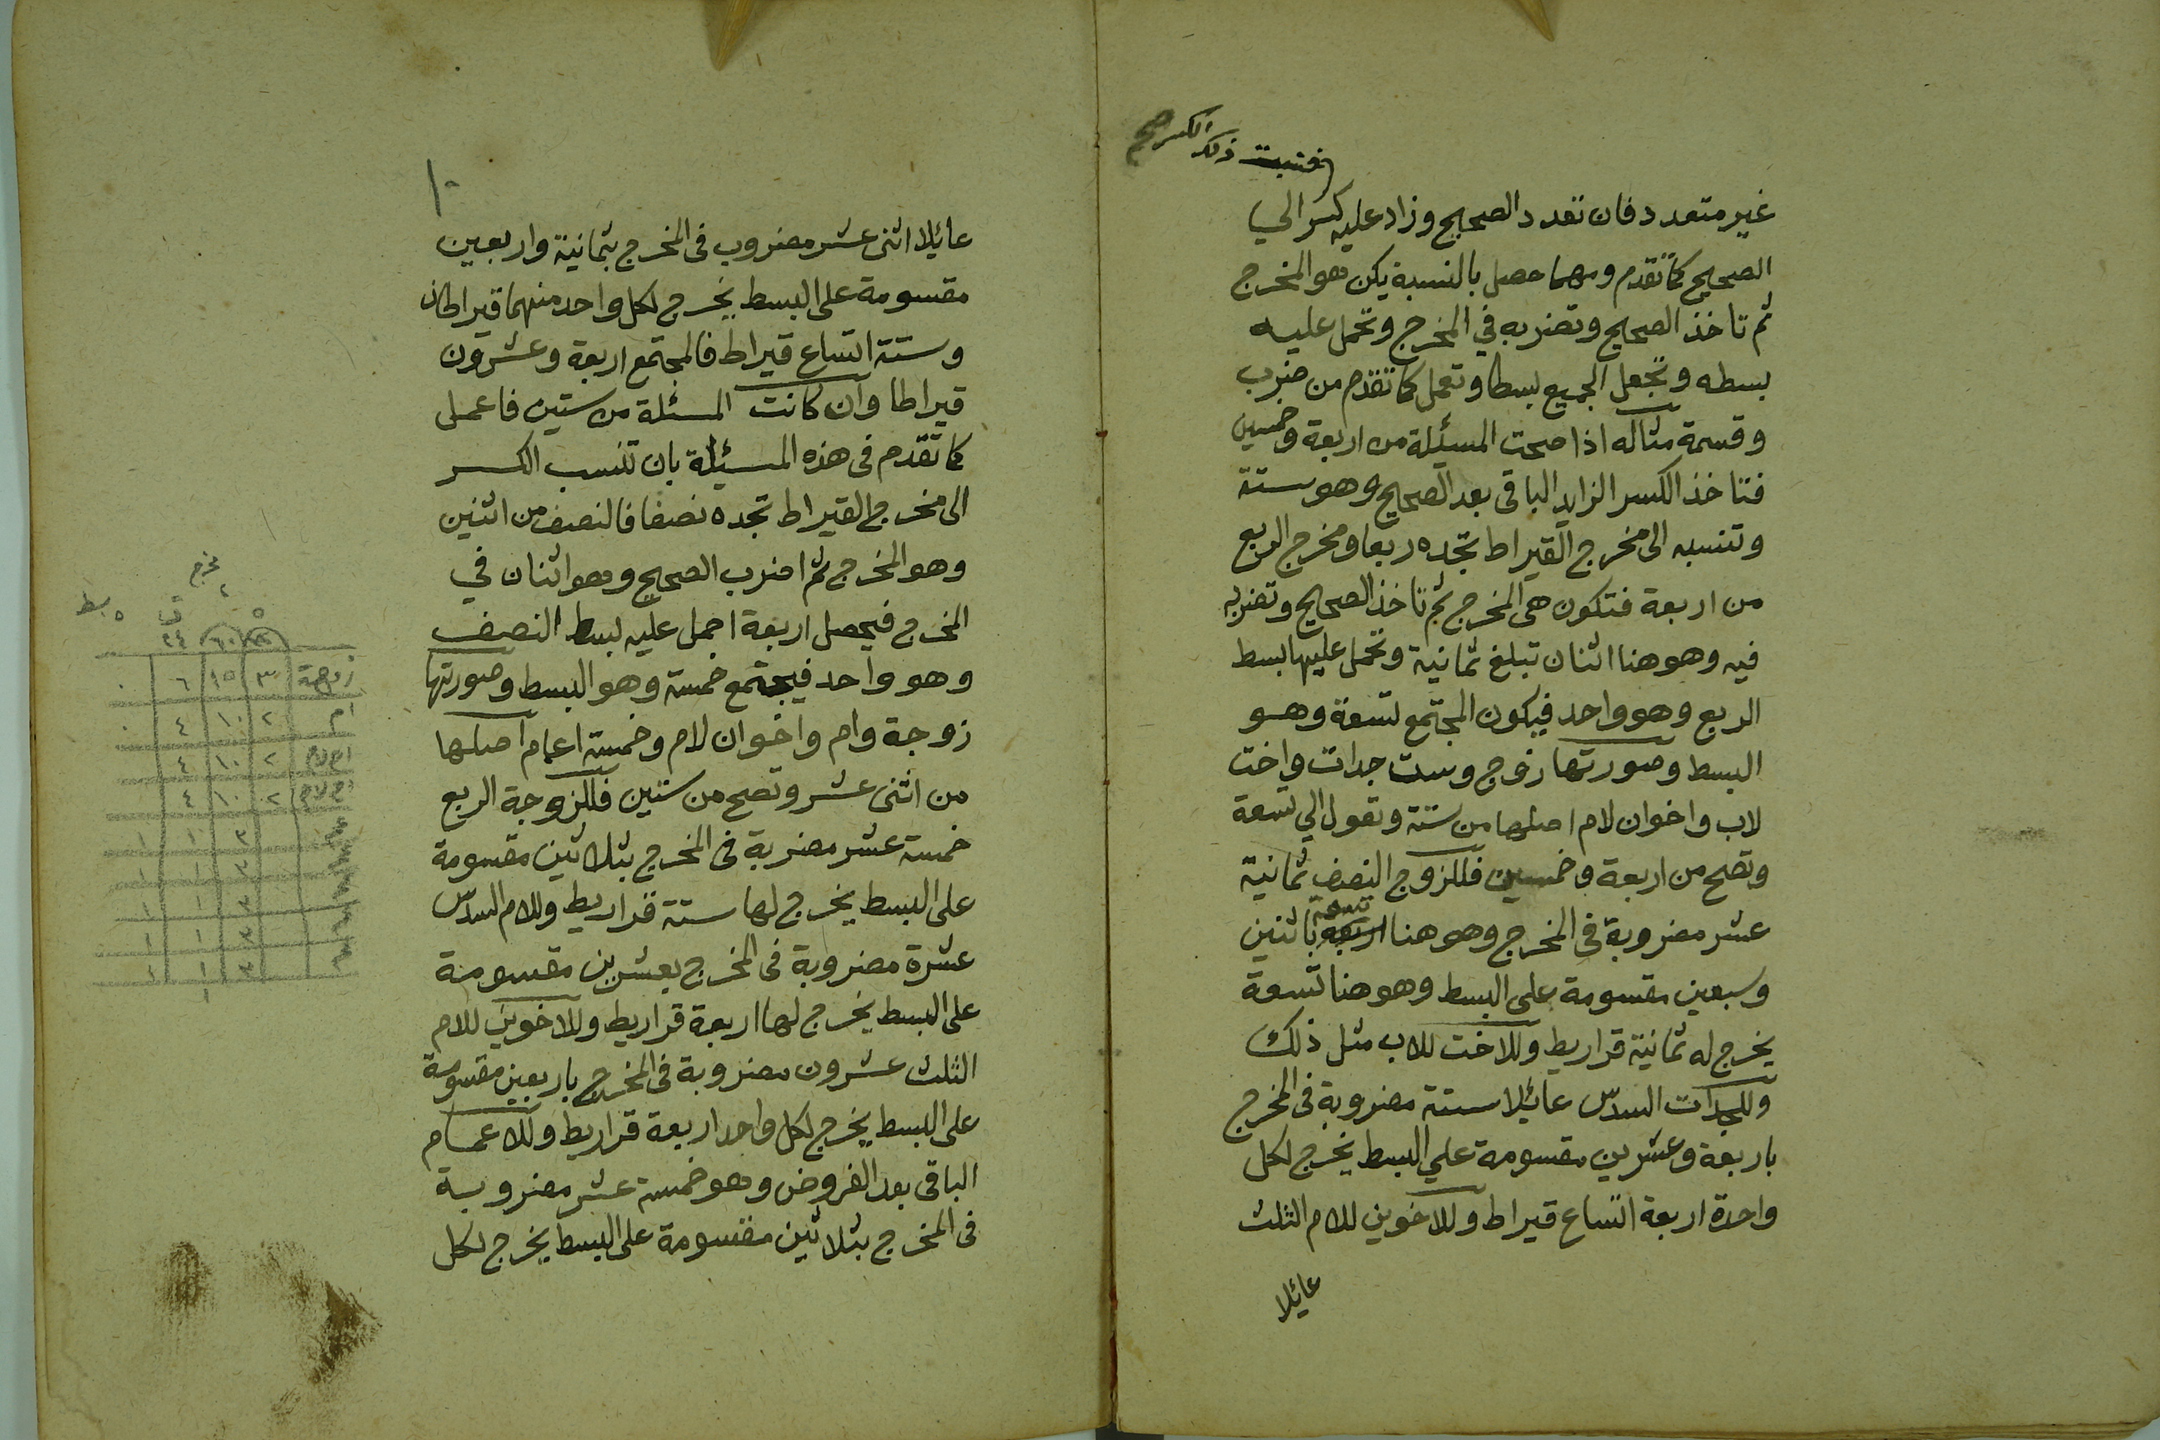 فتنسب ذلك الكسر صح
غير متعدد فان تعدد الصحيح وزاد عليه كسر الي
الصحيح كما تقدم ومهما حصل بالنسبة يكن هو المخرج
ثم تاخذ الصحيح وتضربه في المخرج وتحمل عليه
بسطه وتجعل الجميع بسطا وتعمل كما تقدم من ضرب
وقسمة مثاله اذا صحت المسئلة من اربعة وخمسين
فتاخذ الكسر الزايد الباقى بعد الصحيح وهو ستة
وتنسبه الى مخرج القيراط تجده ربعا ومخرج الربع
من اربعة فتكون هى المخرج ثم تاخذ الصحيح وتضربه
فيه وهو هنا اثنان تبلغ ثمانية وتحمل عليها بسط
الربع وهو واحد فيكون المجتمع تسعة وهو
البسط وصورتها زوج وست جدات واخت
لاب واخوان لام اصلها من ستة وتعول الي تسعة
وتصح من اربعة وخمسين فللزوج النصف ثمانية
عشر مضروبة فى المخرج وهو هنا اربعة باثنين
وسبعين مقسومة على البسط وهو هنا تسعة
يخرج له ثمانية قراريط وللاخت للاب مثل ذلك
وللجدات السدس عائلا ستة مضروبة فى المخرج
باربعة وعشرين مقسومة علي البسط يخرج لكل
واحدة اربعة اتساع قيراط وللاخوين للام الثلث
عائلا
١٠
عائلا اثنى عشر مضروب فى المخرج بثمانية واربعين
مقسومة على البسط يخرج لكل واحد منهما قيراطان
وستة اتساع قيراط فالمجتمع اربعة وعشرون
قيراطا وان كانت المسئلة من ستين فاعمل
كما تقدم فى هذه المسئلة بان تنسب الكسر
الى مخرج القيراط تجده نصفا فالنصف من اثنين
وهو المخرج ثم اضرب الصحيح وهو اثنان في
المخرج فيحصل اربعة احمل عليه بسط النصف
وهو واحد فيجتمع خمسة وهو البسط وصورتها
زوجة وام واخوان لام وخمسة اعمام اصلها
من اثنى عشر وتصح من ستين فللزوجة الربع
خمسة عشر مضربة فى المخرج بثلاثين مقسومة
على البسط يخرج لها ستة قراريط وللام السدس
عشرة مضروبة فى المخرج بعشرين مقسومة
على البسط يخرج لها اربعة قراريط وللاخوين للام
الثلث عشرون مضروبة فى المخرج باربعين مقسومة
على البسط يخرج لكل واحد اربعة قراريط وللاعمام
الباقى بعد الفروض وهو خمسة عشر مضروبة
فى المخرج بثلاثين مقسومة على البسط يخرج لكل
مخرج
٢
٥ ق ٥ بسط
٦٠ ٢٤
زوجة ٣ ١٥ ٦ ٠
ام ٢ ١٠ ٤ ٠
اخ لام ٢ ١٠ ٤
اخ لام ٢ ١٠ ٤
٣ ١ ١
٣ ١ ١
٣ ١ ١
٣ ١ ١
٣ ١ ١